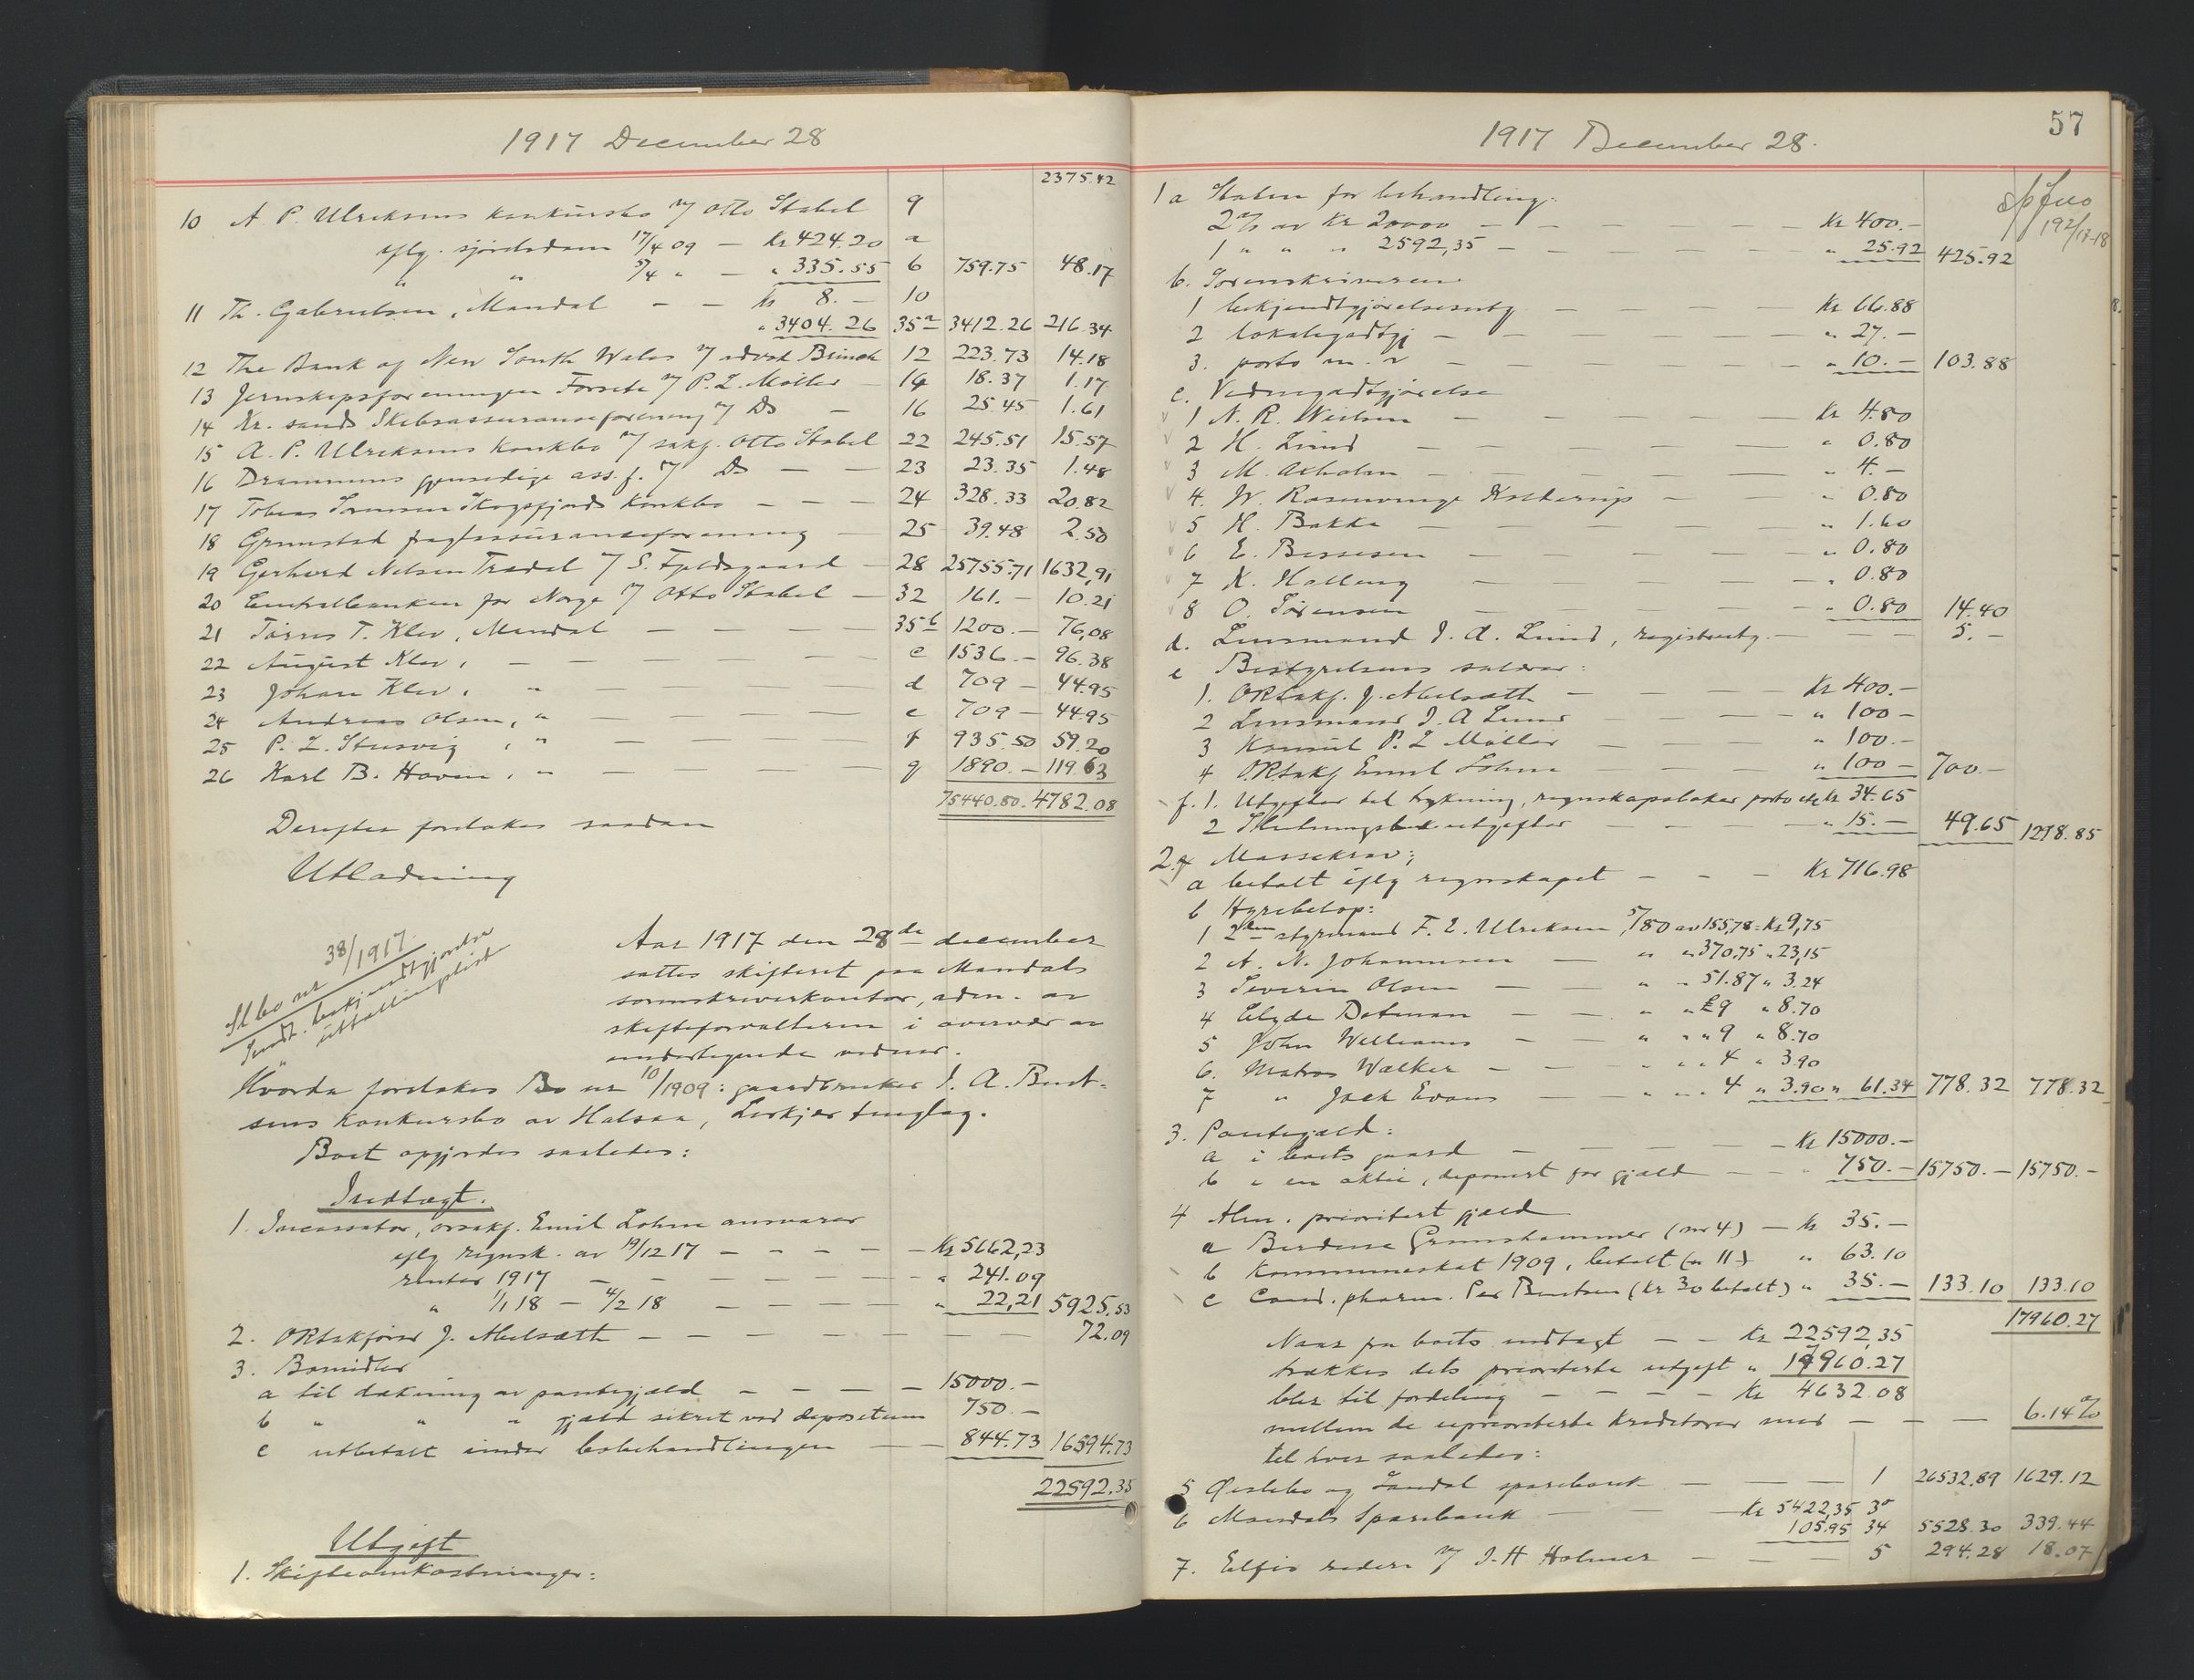 1917 December 28
2375.42
10 A. P. Ulriksens konkursbo v/ Otto Stabel 9
iflg. sjørets dom 17/4 09 — Kr 424.20 a
" " 5/4 " — " 335.55 b 759.75 48.17
11 Th. Gabrielsen, Mandal — — Kr 8. — 10
" 3404.26 35a 3412.26 216.34
12 The Bank of New South Wales v/ advok Brinch 12 223.73 14.18
13 Jernskipsforeningen v/ P. Z. Møller — 14 18.37 1.17
14 Kr. sands Skibsassuranceforening v/ Do — 16 25.45 1.61
15 A. P. Ulriksens konkbo v/ sakf. Otto Stabel 22 245.51 15.57
16 Drammens gjensidige ass. f. v/ Do — — 23 23.35 1.48
17 Tobias Sørensen Skogsfjords konkbo — — — 24 328.33 20.82
18 Grimstad fragtassuranceforening — 25 39.48 2.50
19 Gerhard Nelsen Tredal v/ S. Fjeldsgaard — 28 25755.71 1632,91
20 Centralbanken for Norge v/ Otto Stabel — 32 161. — 10.21
21 Tørres T. Klev, Mandal — — — — 35b 1200. — 76,08
22 August Klev, — — — — — c 1536. — 96.38
23 Johan Klev, " — — — — d 709 — 44.95
24 Andreas Olsen, " — — — — e 709 — 44.95
25 P. Z. Stusvig, " — — — — f 935.50 59.20
26 Karl B. Hoven, " — — — — g 1890. — 119.63
75440.80. 4782.08
Derefter foretokes saadan
Utlodning
38/1917
Sl bo nr
Indt. bekjendtgjørelse
" utdelingslist
Aar 1917 den 28de december
sattes skifteret paa Mandals
sorenskriverkontor, adm. av
skifteforvalteren i overvær av
undertegnede vidner.
Hvorda foretokes Bo nr 10/1909: gaardbruker J. A. Bent-
sens konkursbo av Halsaa, tinglag.
Boet opgjordes saaledes:
Indtægt.
1. Incassator, orsakf. Emil Lohne ansvarer
iflg regnsk. av 19/12 17 — — — — — Kr 5662,23
renter 1917 — — — — — — " 241.09
" 1/1 18 — 4/2 18 — — — — " 22,21 5925.53
2. ORsakfører J. Abelsæth — — — — — — — 72.09
3. Bomidler
a til dækning av pantegjæld — — — — 15000. —
b " " " gjæld sikret ved depositum 750. —
c utbetalt under bobehandlingen — — 844.73 16594.73
22592.35
Utgift
1. Skifteomkostninger:
57
1917 December 28.
192/17-18
1 a Staten for behandling:
2% av Kr 20000 — — — — — — Kr 400. —
1 " " " 2592,35 — — — — — " 25.92 425.92
b. Sorenskriveren
1 bekjendtgjørelsesutg — — — — Kr 66.88
2 lokalegodtgj — — — — — " 27. —
3. porto m. v — — — — — — " 10. — 103.88
c. Vidnegodtgjørelse
1 N. R. Neilsen — — — — — Kr 4.80
2 H. Lund — — — — — " 0.80
3 M. Axholm — — — — " 4. —
4. W. Rosenvinge Kolderup — " 0.80
5 H. Bakke — — — — — " 1.60
6 E. Berresen — — — — — " 0.80
7 K. Halleng — — — — — " 0.80
8 O. Sørensen — — — — — " 0.80 14.40
d. Lensmand J. A. Lund, registrutg — — — 5. —
e Bestyrelsens salær:
1. ORsakf. J. Abelsæth — — — Kr 400. —
2 Lensmand J. A Lund — — — " 100 —
3 Konsul P. Z Møller — — — " 100. —
4 ORsakf Emil Lohne — — — " 100 — 700. —
f. 1. Utgifter til trykning, regnskapsbøker porto etc kr 34.65
2 Slutningsutgifter — — — " 15. — 49.65 1298.85
2. Massekrav:
a betalt iflg regnskapet — — — Kr 716.98
b Hyrebeløp:
1 2den styrmand F. E. Ulriksen 5/80 av 155,78 = Kr 9,75
2 A. N. Johannesen — " " 370.75 " 23,15
3 Severin Olsen — — " " 51.87 " 3.24
4 Clyde Dotman — — " " £9 " 8.70
5 John Williams — — " " " 9 " 8.70
6. Matros Walker — — — " " " 4 " 3.90
7 " Jack Evans — — — " " " 4 " 3.90 " 61.34 778.32 778.32
3. Pantegjæld:
a i boets gaard — — — — Kr 15000. —
b i en aktie, deponert for gjæld — — " 750. — 15750. — 15750. —
4 Alm. prioritert gjæld
a Berdine Grunshammer (nr 4) — Kr 35. —
b Kommuneskat 1909, betalt (" 11) " 63.10
c Cand. pharm. Per Bentsen (Kr 30 betalt) " 35. — 133.10 133.10
17960.27
Naar fra boets indtægt — — Kr 22592,35
trækkes dets prioriterte utgift " 17960.27
blir til fordeling — — — — Kr 4632.08
mellem de uprioriterte kreditorer med — — — 6.14%
til hver saaledes:
5 Øislebø og Laudal sparebank — — — 1 26532,89 1629.12
6 Mandals Sparebank — — Kr 5422,35 3
105.95 34 5528.30 339.44
7. Elfis rederi v/ J. H Holmer — — — 5 294.28 18.07